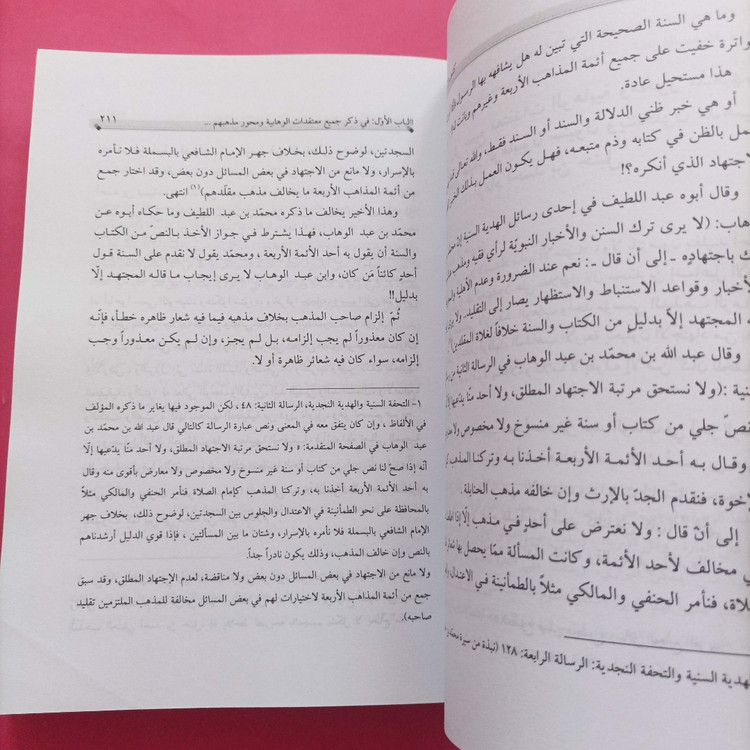 وما هي السنة الصحيحة التي تبين له هل يشافهه بها الرسول
خفيت على جميع أئمة المذاهب الأربعة وغيرهم
هذا مستحيل عادة.
أو هي خبر ظني الدلالة والسند أو السند فقط، والله تعالى
بالظن في كتابه وذم متبعه، فهل يكون العمل بذلك
الذي أنكره؟!
وقال أبوه عبد اللطيف في إحدى رسائل الهدية السنية
(لا يرى ترك السنن والأخبار النبويّة لرأي فقيه
باجتهاده ـ إلى أن قال ـ: نعم عند الضرورة وعدم الأهلية
وقواعد الاستنباط والاستظهار يصار إلى التقليد
المجتهد إلاّ بدليل من الكتاب والسنة خلافاً لغلاة
وقال عبد الله بن محمّد بن عبد الوهاب في الرسالة الثانية
(ولا نستحق مرتبة الاجتهاد المطلق، ولا أحد منّا يدّعيها
نصّ جلي من كتاب أو سنة غير منسوخ ولا مخصوص ولا
وقال به أحـد الأئمة الأربعة أخـذنا بـه وتركنا المذهب
فنقدم الجدّ بالإرث وإن خالفه مذهب الحنابلة.
إلى أنْ قال: ولا نعترض على أحدٍ في مذهب إلّا إذا
مخالف لأحد الأئمة، وكانت المسألة ممّا يحصل بها
فنأمر الحنفي والمالكي مثلاً بالطمأنينة في الاعتدال
الهدية السنية والتحفة النجدية: الرسالة الرابعة: ١٢٨ (نبذة من سيرة
الباب الأوّل: في ذكر جميع معتقدات الوهابية ومحور مذهبهم ... ٢١١
السجدتين، لوضوح ذلـك، بخلاف جهر الإمام الشافعي بالبسملة فـلا نـأمره
بالإسرار، ولا مانع من الاجتهاد في بعض المسائل دون بعض، وقد اختار جمع
من أئمة المذاهب الأربعة ما يخالف مذهب مقلّدهم)(١) انتهى.
وهذا الأخير يخالف ما ذكره محمّد بن عبد اللطيف وما حكـاه أبـوه عـن
محمّد بن عبد الوهاب، فهـذا يشـترط فـي جـواز الأخـذ بـالنصّ مـن الكتاب
والسنة أن يقول به أحد الأئمة الأربعة، ومحمّد يقول لا نقدم على السنة قـول
أحدٍ كائناً مَن كان، وابن عبد الوهاب لا يرى إيجاب ما قالـه المجتهـد إلّا
بدليل!!
ثمّ إلزام صاحب المذهب بخلاف مذهبه فيما فيه شعار ظاهره خطأ، فإنّـه
إن كان معذوراً لم يجب إلزامـه، بـل لـم يجـز، وإن لـم يكـن معـذوراً وجـب
إلزامه، سواء كان فيه شعائر ظاهرة أو لا.
١- التحفة السنية والهدية النجدية، الرسالة الثانية: ٤٨، لكن الموجود فيها يغاير ما ذكره المؤلف
في الألفاظ، وإن كان يتفق معه في المعنى ونص عبارة الرسالة كالتالي قال عبد الله بن محمد بن
عبد الوهاب في الصفحة المتقدمة: ٥ ولا نستحق مرتبة الاجتهاد المطلق، ولا أحد منّا يدّعيها إلّا
أنّه إذا صحّ لنا نص جلي من كتاب أو سنة غير منسوخ ولا مخصوص ولا معارض بأقوى منه وقال
به أحد الأئمة الأربعة أخذنا به، وتركنا المذهب كإمام الصلاة فنأمر الحنفي والمالكي مثلاً
بالمحافظة على نحو الطمأنينة في الاعتدال والجلوس بين السجدتين، لوضوح ذلك، بخلاف جهر
الإمام الشافعي بالبسملة فلا نأمره بالإسرار، وشتان ما بين المسألتين، فإذا قوي الدليل أرشدناهم
بالنص وإن خالف المذهب، وذلك يكون نادراً جداً.
ولا مانع من الاجتهاد في بعض المسائل دون بعض ولا مناقضة، لعدم الإجتهاد المطلق، وقد سبق
جمع من أئمة المذاهب الأربعة لاختيارات لهم في بعض المسائل مخالفة للمذهب الملتزمين تقليد
صاحبه).